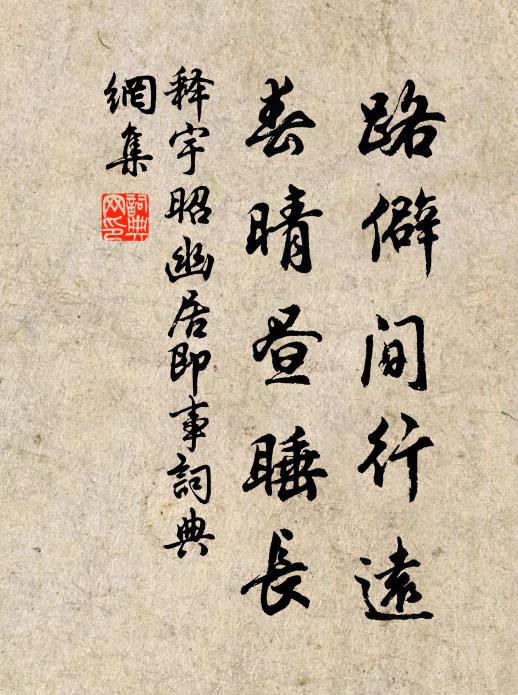 路僻閒行遠
春晴晝睡長
释宇昭幽居即事詞典
網集
詞典
网印